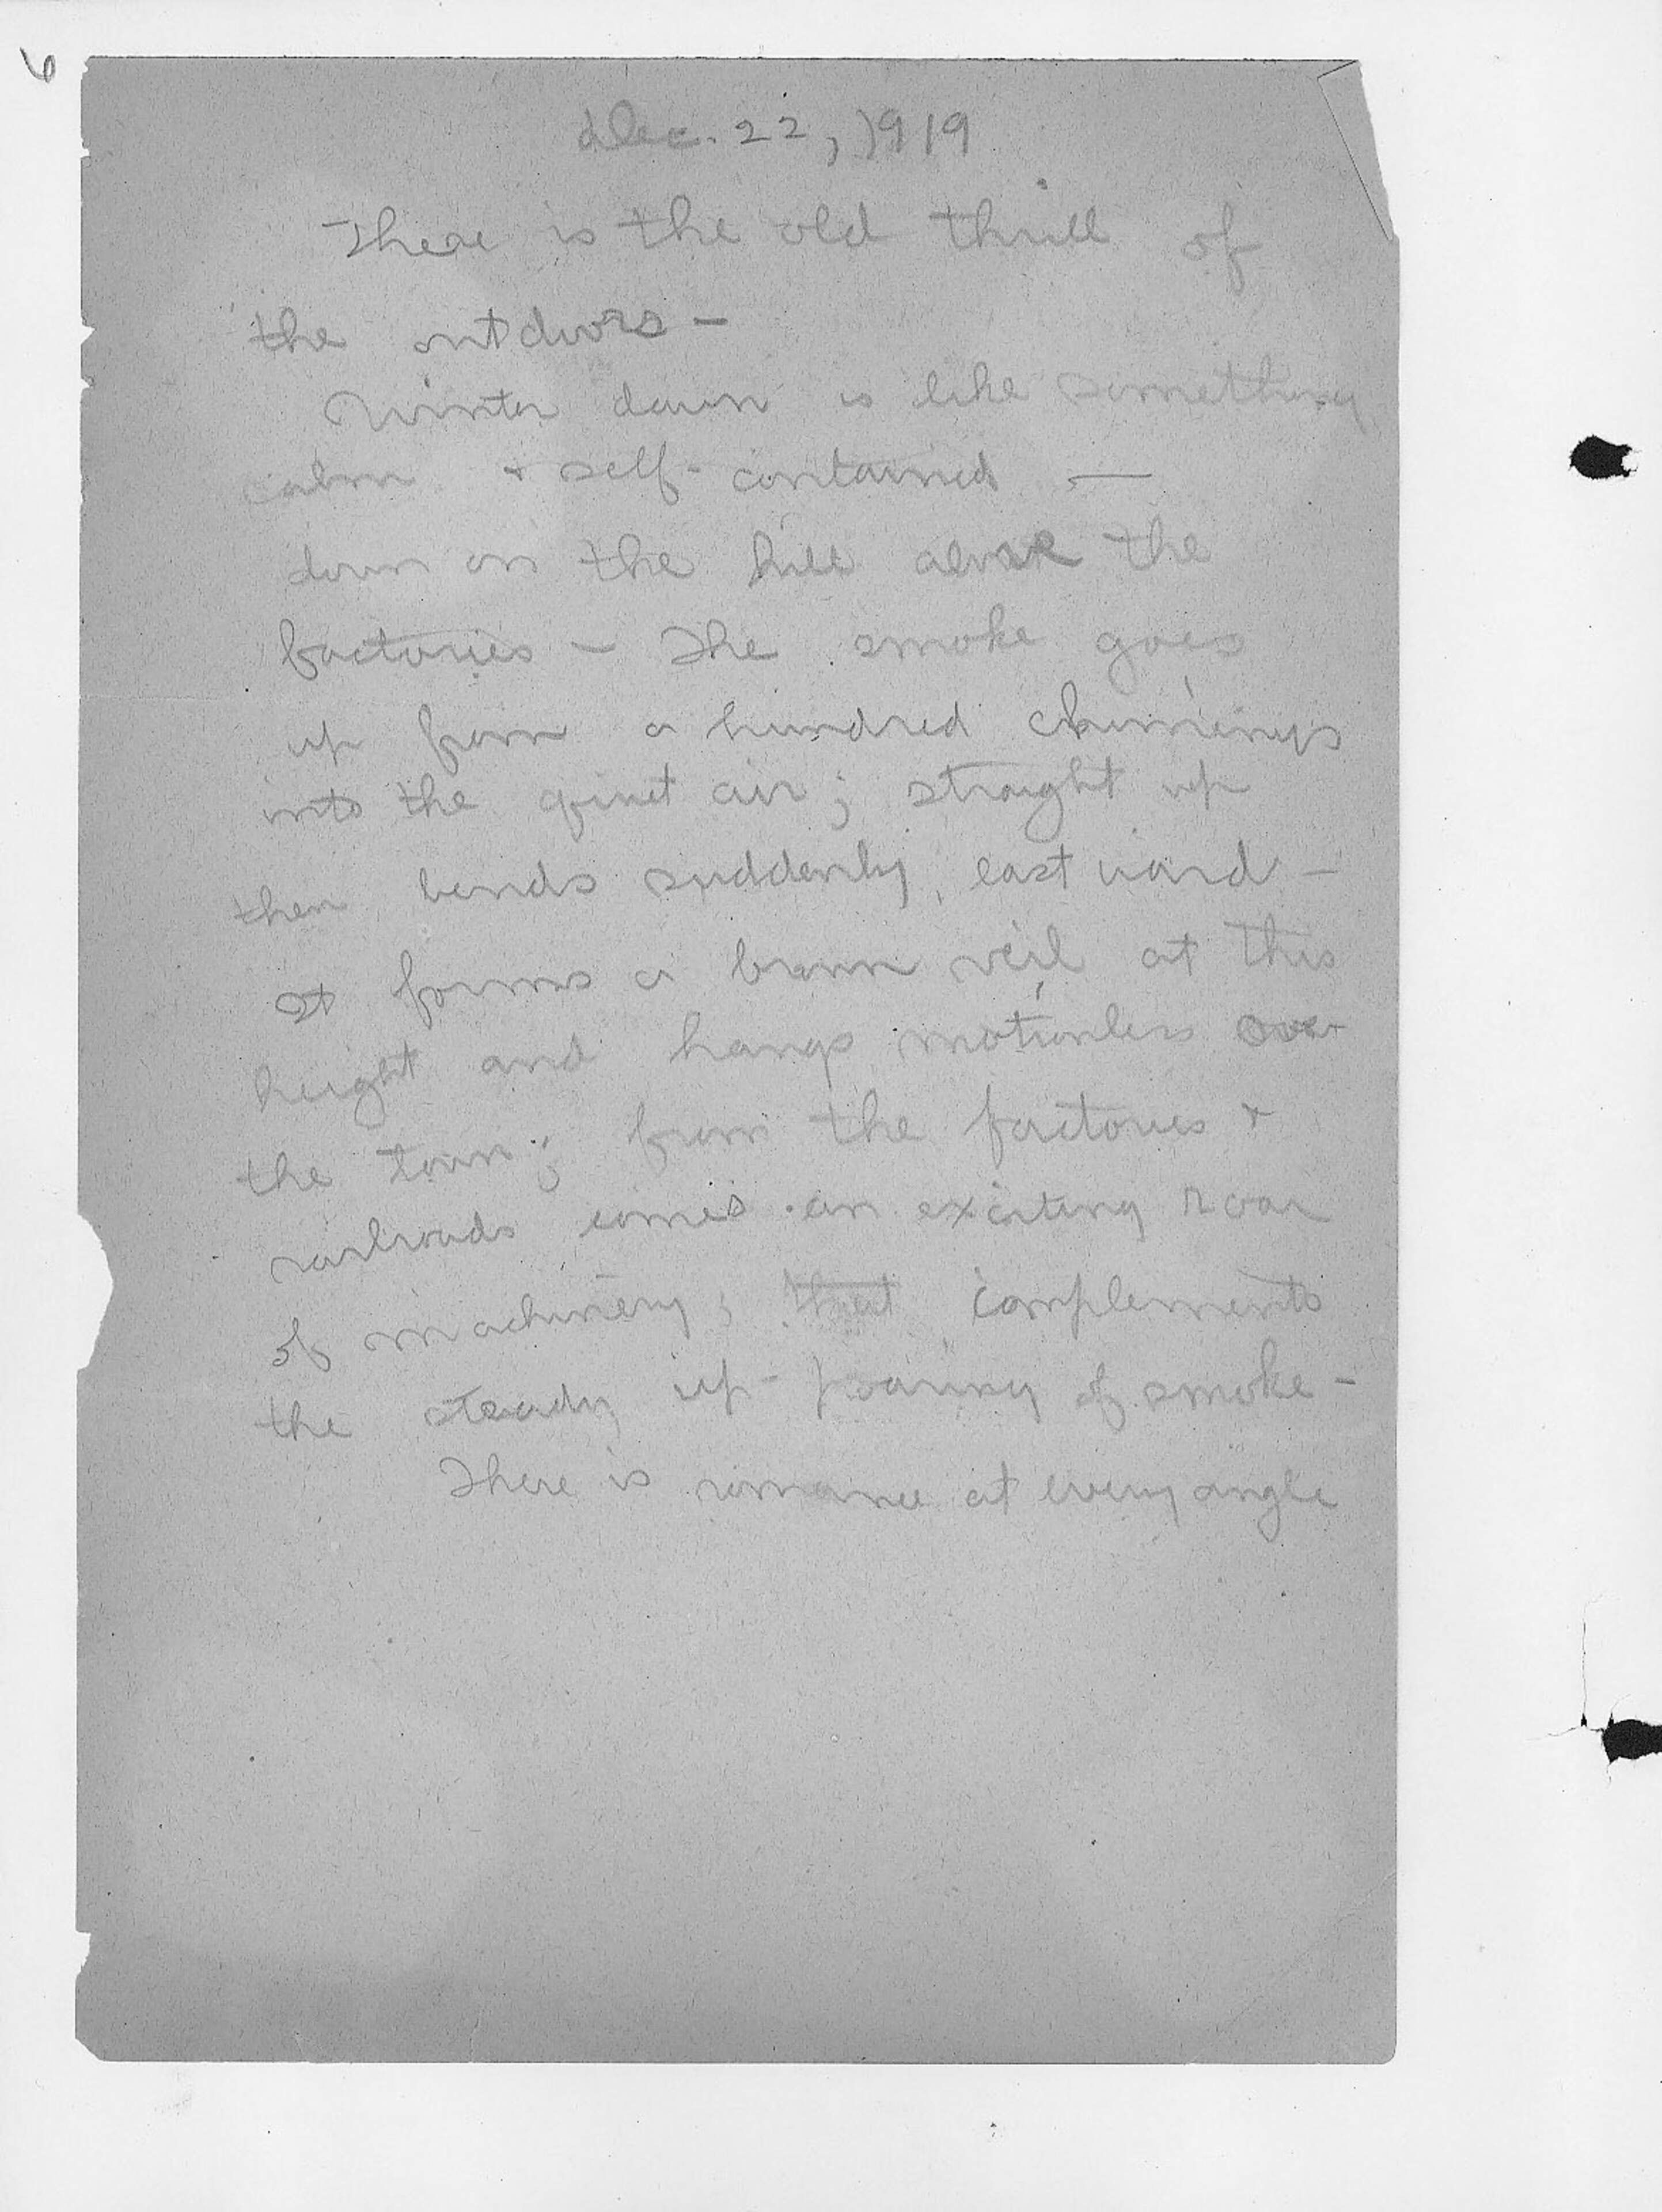 6
Dec. 22, 1919
There is the old thrill of
the outdoors —
Winter dawn is like something
calm + self-contained —
down on the hill above the
factories — The smoke goes
up from a hundred chimneys
into the quiet air; straight up
then bends suddenly, eastward —
It forms a brown veil at this
height and hangs motionless over
the town; from the factories +
railroads comes an exciting roar
of machinery; that complements
the steady up-pouring of smoke —
There is romance at every angle